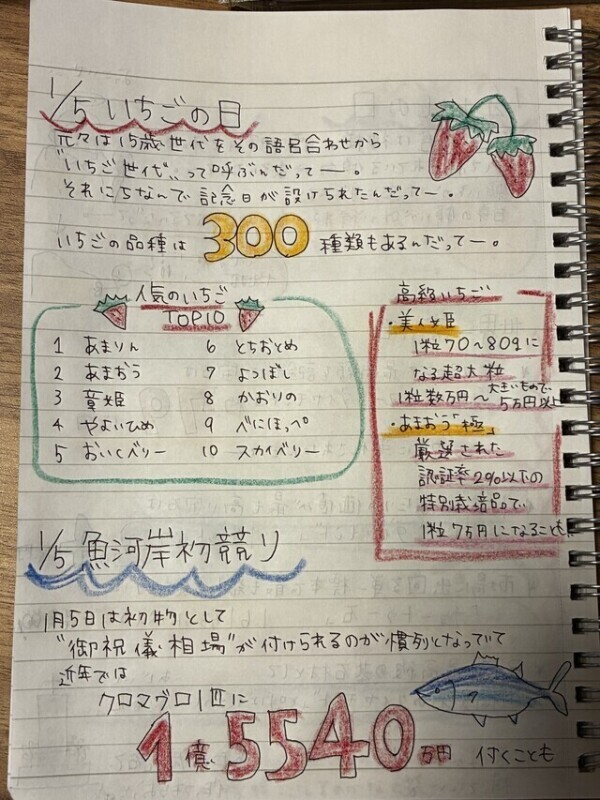 1/5 いちごの日
元々は15歳世代をその語呂合わせから
"いちご世代"って呼ぶんだってー。
それにちなんで記念日が設けられたんだってー。
いちごの品種は300種類もあるんだってー。
人気のいちご
TOP10
1 あまりん
2 あまおう
3 章姫
4 やよいひめ
5 おいCベリー
6 とちおとめ
7 よつぼし
8 かおりの
9 べにほっぺ
10 スカイベリー
高級いちご
・美人姫
1粒70〜80gに
なる超大粒
1粒数万円〜大きいもので5万円以上
・あまおう「極」
厳選された
認証率2%以下の
特別栽培品で
1粒7万円になることも
1/5 魚河岸初競り
1月5日は初物として
"御祝儀相場"が付けられるのが慣例となっていて
近年では
クロマグロ1匹に
1億5540万円 付くことも